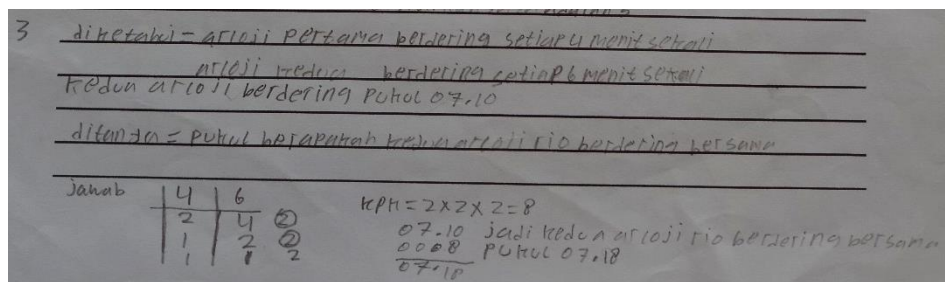 3 diketahui = arloji pertama berdering setiap 4 menit sekali
arloji kedua berdering setiap 6 menit sekali
kedua arloji berdering pukul 07.10
ditanya = pukul berapakah kedua arloji rio berdering bersama
jawab
4 6
2 4 2
1 2 2
1 1 2
KPK = 2x2x2=8
07.10 jadi kedua arloji rio berdering bersama
0008 pukul 07.18
07.18